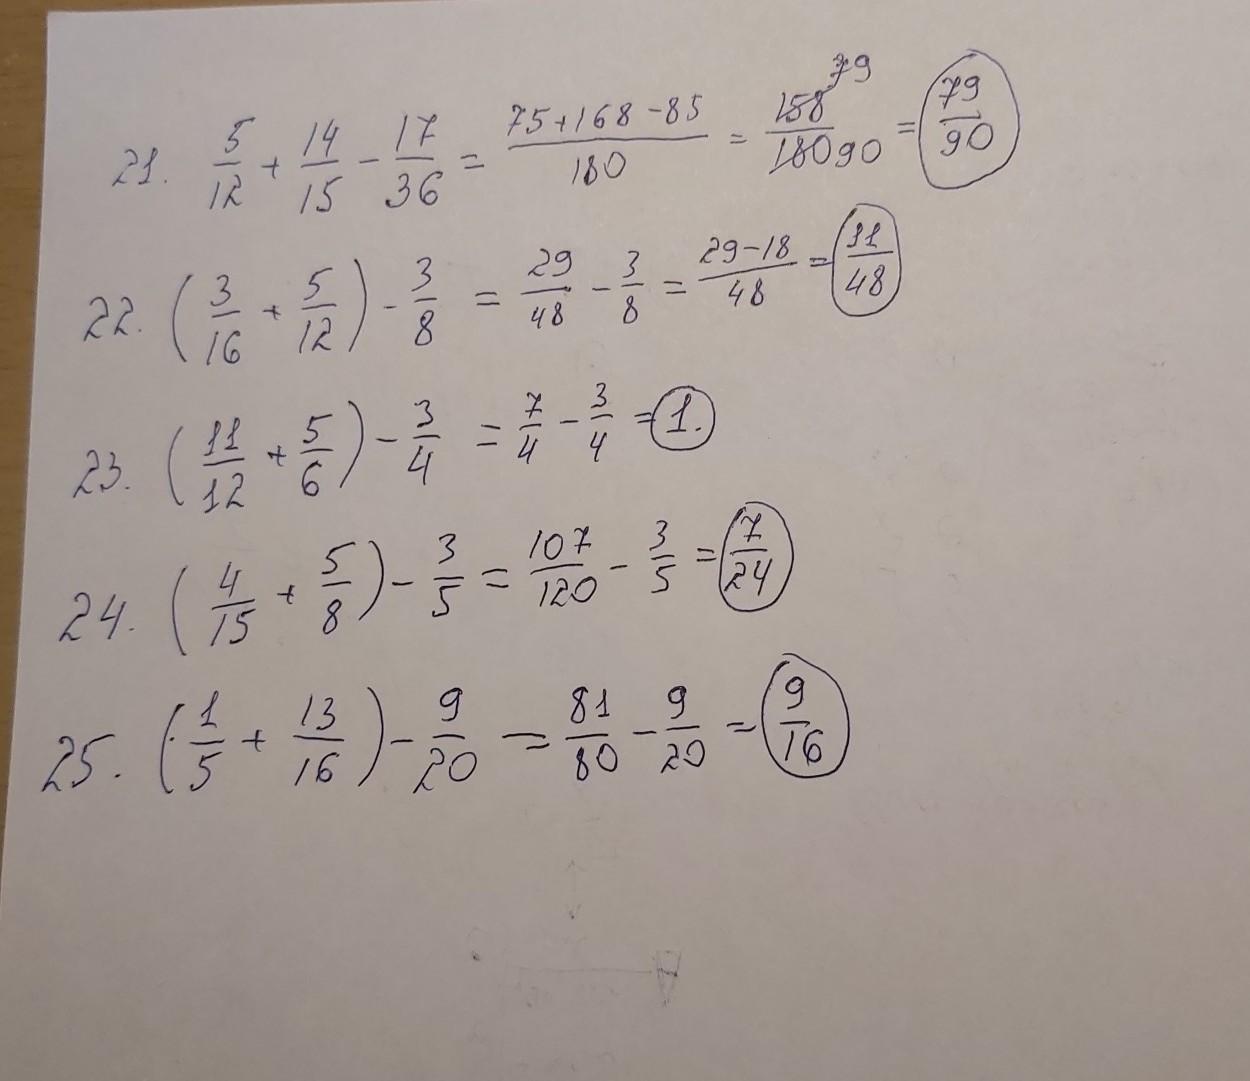 21. 5/12 + 14/15 - 17/36 = (75+168-85)/180 = 158 79/180 90 = 79/90
22. (3/16 + 5/12) - 3/8 = 29/48 - 3/8 = (29-18)/48 = 11/48
23. (11/12 + 5/6) - 3/4 = 7/4 - 3/4 = 1.
24. (4/15 + 5/8) - 3/5 = 107/120 - 3/5 = 7/24
25. (1/5 + 13/16) - 9/20 = 81/80 - 9/20 = 9/16